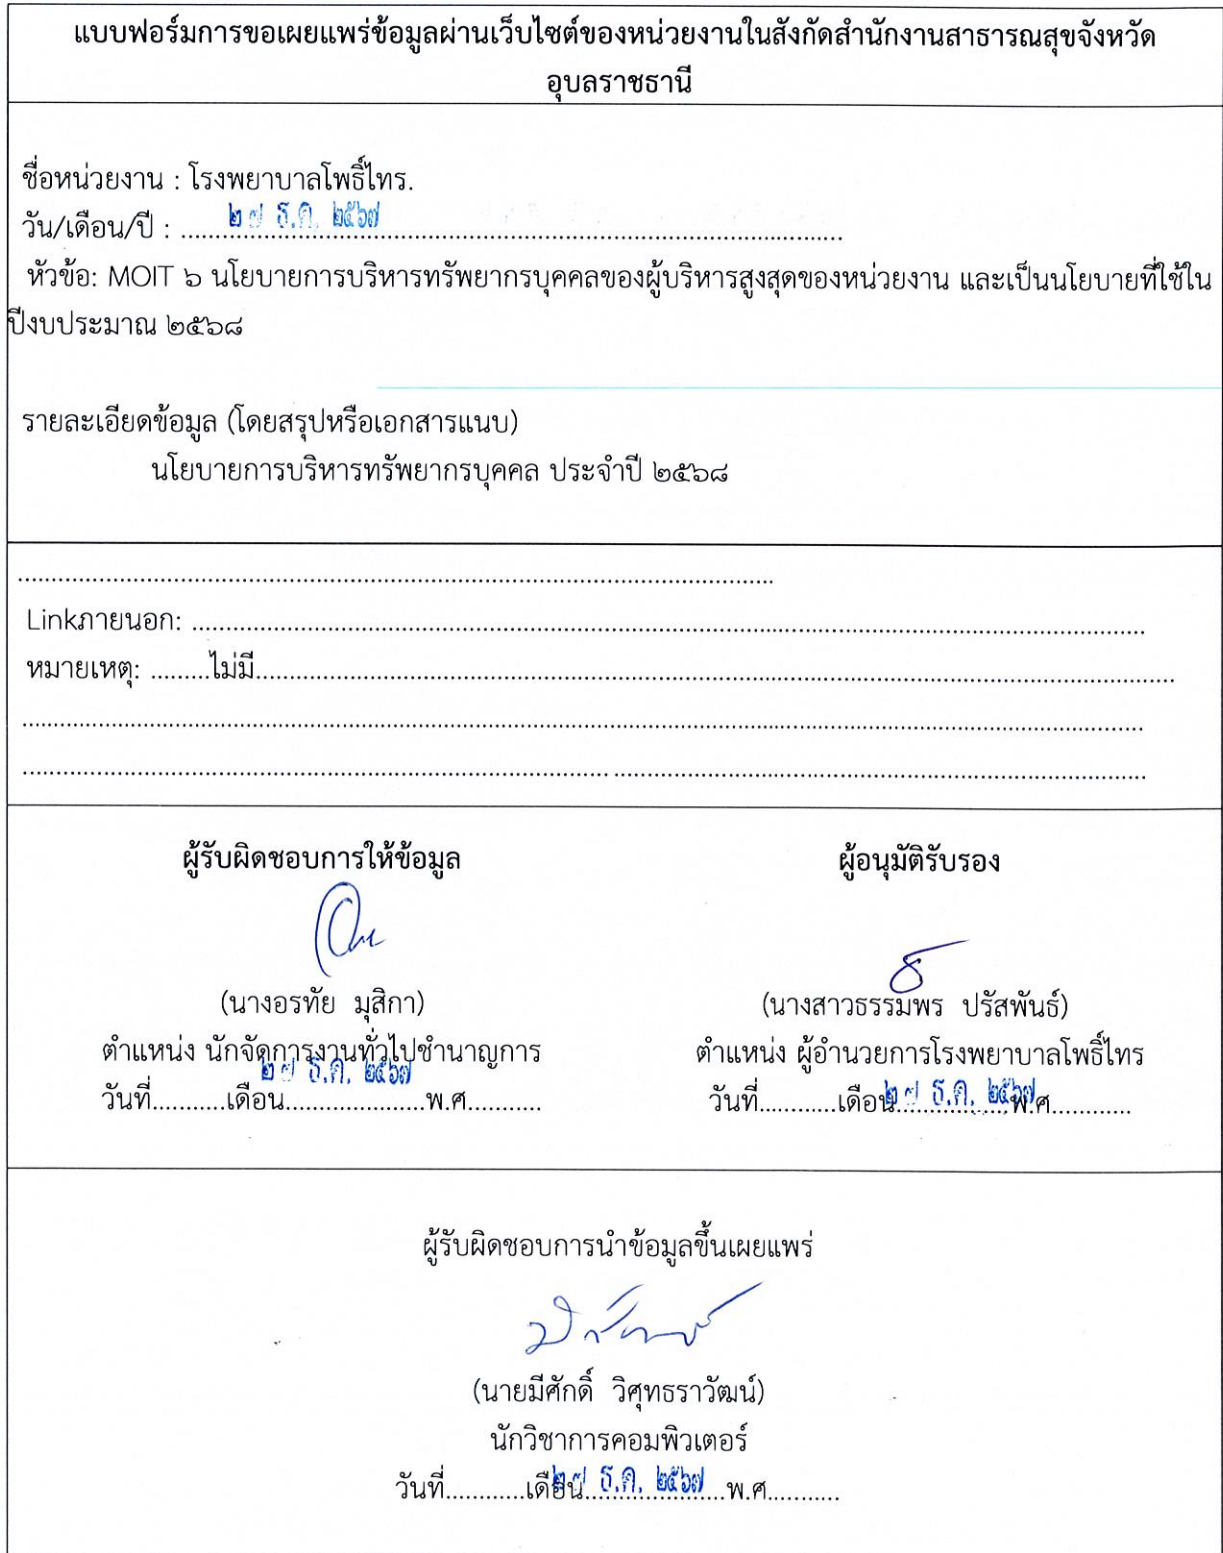 แบบฟอร์มการขอเผยแพร่ข้อมูลผ่านเว็บไซต์ของหน่วยงานในสังกัดสำนักงานสาธารณสุขจังหวัด
อุบลราชธานี
ชื่อหน่วยงาน : โรงพยาบาลโพธิ์ไทร.
วัน/เดือน/ปี : ๒๗ ธ.ค. ๒๕๖๗
หัวข้อ: MOIT ๖ นโยบายการบริหารทรัพยากรบุคคลของผู้บริหารสูงสุดของหน่วยงาน และเป็นนโยบายที่ใช้ใน
ปีงบประมาณ ๒๕๖๘
รายละเอียดข้อมูล (โดยสรุปหรือเอกสารแนบ)
นโยบายการบริหารทรัพยากรบุคคล ประจำปี ๒๕๖๘
Linkภายนอก: ..........
หมายเหตุ: .........ไม่มี..........
ผู้รับผิดชอบการให้ข้อมูล
ผู้อนุมัติรับรอง
(นางอรทัย มุสิกา)
(นางสาวธรรมพร ปรัสพันธ์)
ตำแหน่ง นักจัดการงานทั่วไปชำนาญการ
ตำแหน่ง ผู้อำนวยการโรงพยาบาลโพธิ์ไทร
๒๗ ธ.ค. ๒๕๖๗
วันที่...........เดือน.....................พ.ศ...........
วันที่............เดือน ๒๗ ธ.ค. ๒๕๖๗ พ.ศ............
ผู้รับผิดชอบการนำข้อมูลขึ้นเผยแพร่
(นายมีศักดิ์ วิศุทธราวัฒน์)
นักวิชาการคอมพิวเตอร์
วันที่............เดือน ๒๗ ธ.ค. ๒๕๖๗ พ.ศ...........